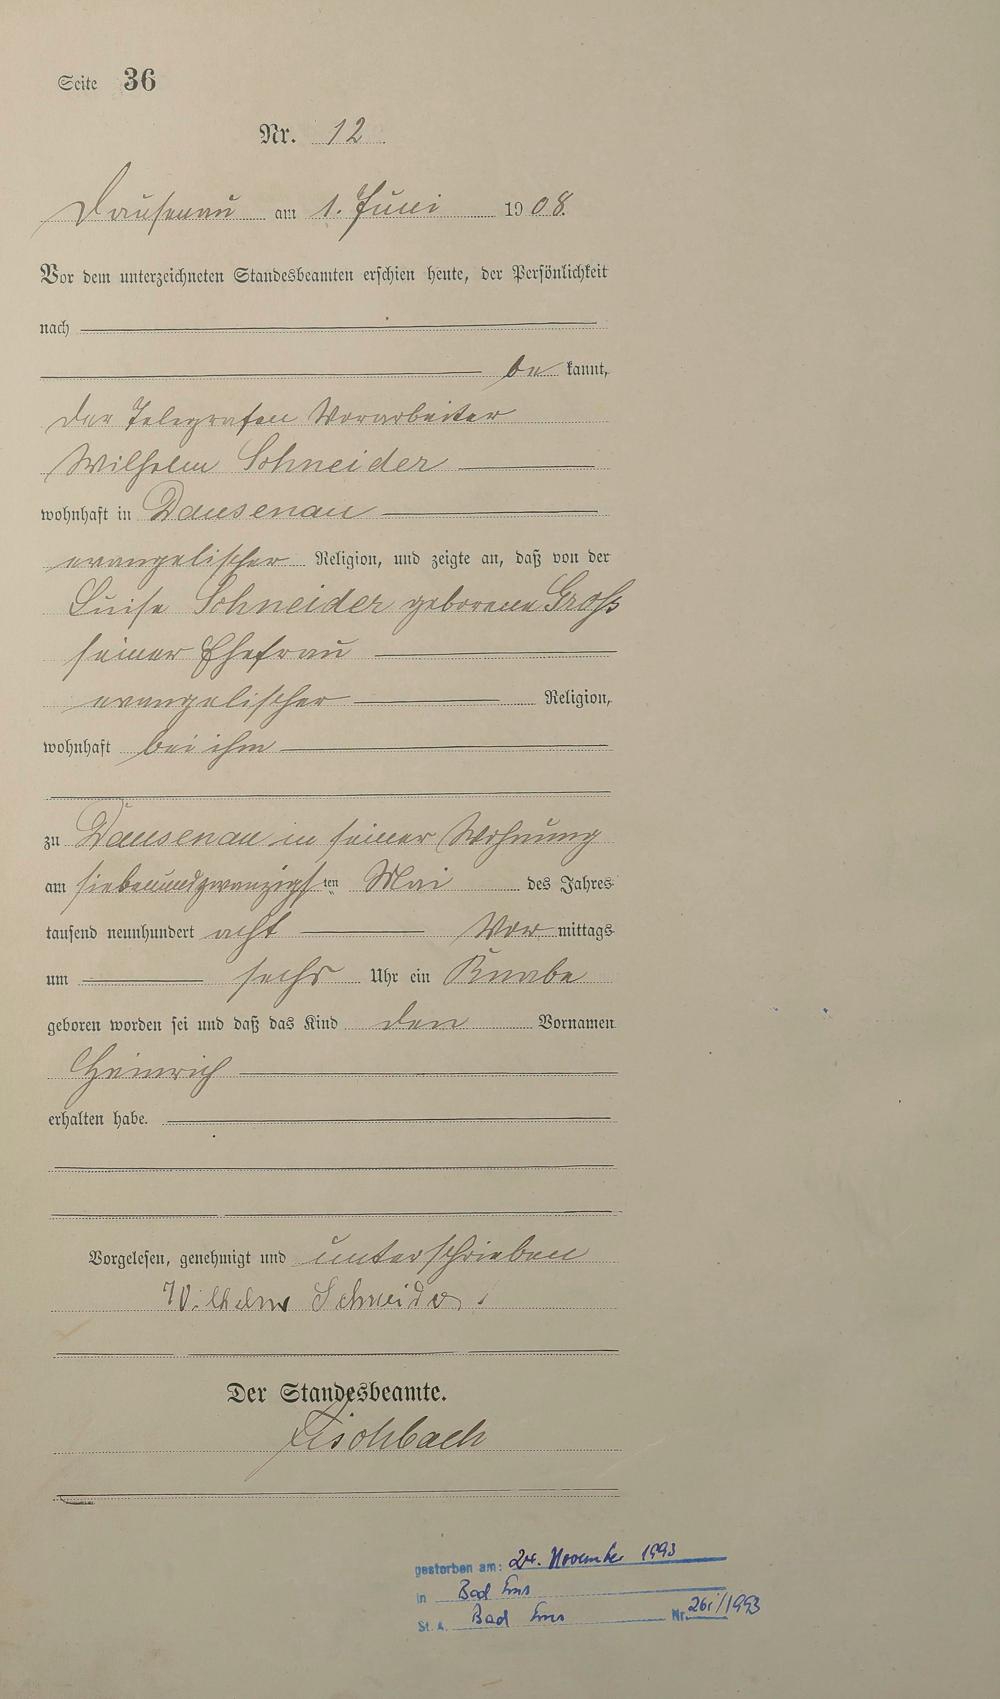 Seite 36
Nr. 12
Dausenau am 1. Juni 1908.
Vor dem unterzeichneten Standesbeamten erschien heute, der Persönlichkeit
nach
be kannt,
der Telegrafen Vorarbeiter
Wilhelm Schneider
wohnhaft in Dausenau
evangelischer Religion, und zeigte an, daß von der
Luise Schneider geborene Groß
seiner Ehefrau
evangelischer Religion,
wohnhaft bei ihm
zu Dausenau in seiner Wohnung
am siebenundzwanzigsten Mai des Jahres
tausend neunhundert acht Vor mittags
um sechs Uhr ein Knabe
geboren worden sei und daß das Kind den Vornamen
Heinrich
erhalten habe.
Vorgelesen, genehmigt und unterschrieben
Wilhelm Schneider
Der Standesbeamte.
Fischbach
gestorben am: 24. November 1993
in Bad Ems
St. A. Bad Ems Nr. /1993